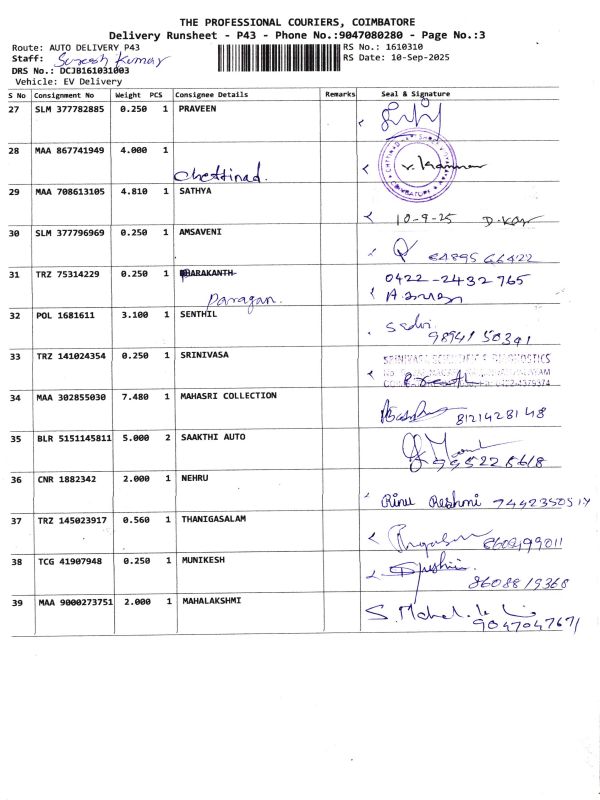 THE PROFESSIONAL COURIERS, COIMBATORE
Delivery Runsheet - P43 - Phone No.:9047080280 - Page No.:3
Route: AUTO DELIVERY P43
RS No.: 1610310
Staff: Suresh Kumar
RS Date: 10-Sep-2025
DRS No.: DCJB161031003
Vehicle: EV Delivery
S No Consignment No Weight PCS Consignee Details Remarks Seal & Signature
27 SLM 377782885 0.250 1 PRAVEEN
28 MAA 867741949 4.000 1
Chettinad.
29 MAA 708613105 4.810 1 SATHYA
10-9-25
30 SLM 377796969 0.250 1 AMSAVENI
31 TRZ 75314229 0.250 1 BARAKANTH 0422-2432765
Paragan.
32 POL 1681611 3.100 1 SENTHIL
98941 50391
33 TRZ 141024354 0.250 1 SRINIVASA
34 MAA 302855030 7.480 1 MAHASRI COLLECTION
8121428148
35 BLR 5151145811 5.000 2 SAAKTHI AUTO
36 CNR 1882342 2.000 1 NEHRU
Rinu Reshmi
37 TRZ 145023917 0.560 1 THANIGASALAM
38 TCG 41907948 0.250 1 MUNIKESH
8608819368
39 MAA 9000273751 2.000 1 MAHALAKSHMI
9047047671